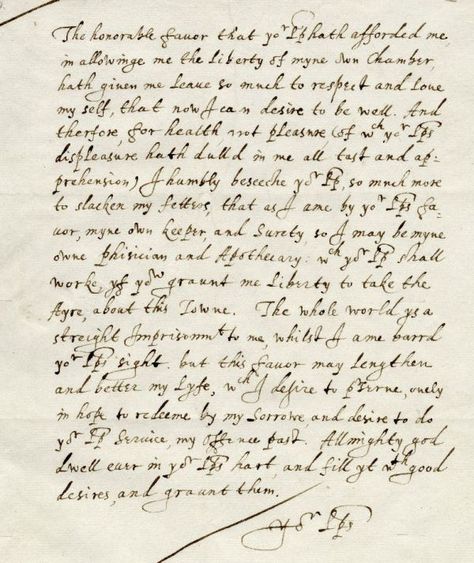 The honorable favor that yor Lp hath afforded me,
in allowinge me the liberty of myne own Chamber,
hath given me leave so much to respect and love
my self, that now I can desire to be well. And
therfore, for health not pleasure (of wch yor Lps
displeasure hath dulld in me all tast and ap-
prehension) I humbly beseeche yor Lp, so much more
to slacken my fetters, that as I ame by yor Lps fa-
vor, myne own keeper, and surety, so I may be myne
owne phisician and Apothecary: wch yor Lp shall
worke, yf yow graunt me liberty to take the
Ayre, about this Towne. The whole world ys a
streight Imprisonmt to me, whilst I ame barrd
yor Lps sight. but this favor may lengthen
and better my lyfe, wch I desire to pserve, onely
in hope to redeeme by my sorrowe, and desire to do
yor Lp service, my offence past. Allmighty god
dwell ever in yor Lps hart, and fill yt wth good
desires, and graunt them.
Yor Lps